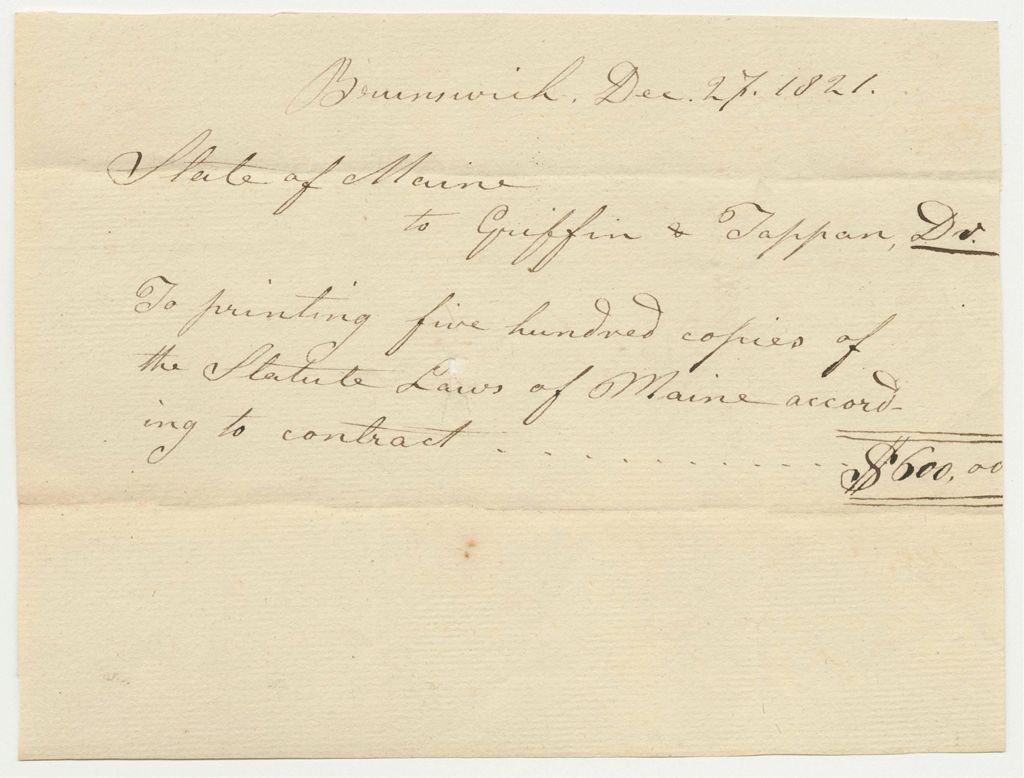 Brunswick. Dec. 27. 1821.
State of Maine
to Griffin & Tappan, Dr.
To printing five hundred copies of
the Statute Laws of Maine accord-
ing to contract . . . . . . . . . . . . . . $600,00